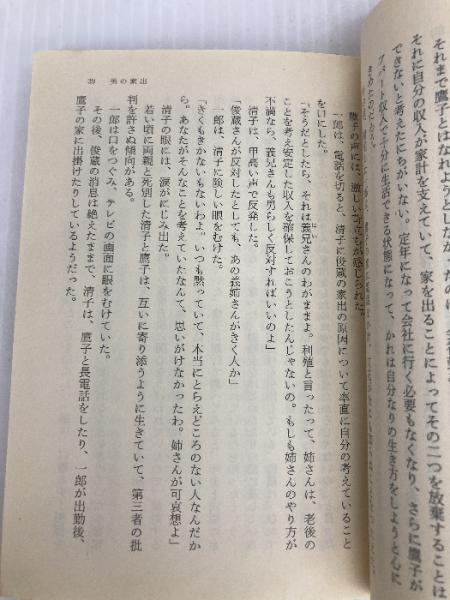 それまで鷹子とはなれようとしなかったのは、
それに自分の収入が家計を支えていて、家を出ることによってその二つを放棄することは
できないと考えたにちがいない。定年になって会社に行く必要もなくなり、さらに鷹子が
アパート収入で十分に生活できる状態になって、かれは自分なりの生き方をしようと心に
39 男の家出
鷹子の声には、激しい苛立ちが感じられた。
一郎は、電話を切ると、清子に俊蔵の家出の原因について率直に自分の考えていること
を口にした。
「そうだとしたら、それは義兄さんのわがままよ。利殖と言ったって、姉さんは、老後の
ことを考え安定した収入を確保しておこうとしたんじゃないの。もしも姉さんのやり方が
不満なら、義兄さんも男らしく反対すればいいのよ」
清子は、甲高い声で反発した。
「俊蔵さんが反対したとしても、あの義姉さんがきく人か」
一郎は、清子に険しい眼をむけた。
「きくもきかないもないわよ。いつも黙っていて、本当にとらえどころのない人なんだか
ら。あなたがそんなことを考えていたなんて、思いがけなかったわ。姉さんが可哀想よ」
清子の眼には、涙がにじみ出た。
若い頃に両親と死別した清子と鷹子は、互いに寄り添うように生きていて、第三者の批
判を許さぬ傾向がある。
一郎は口をつぐみ、テレビの画面に眼をむけていた。
その後、俊蔵の消息は絶えたままで、清子は、鷹子と長電話をしたり、一郎が出勤後、
鷹子の家に出掛けたりしているようだった。